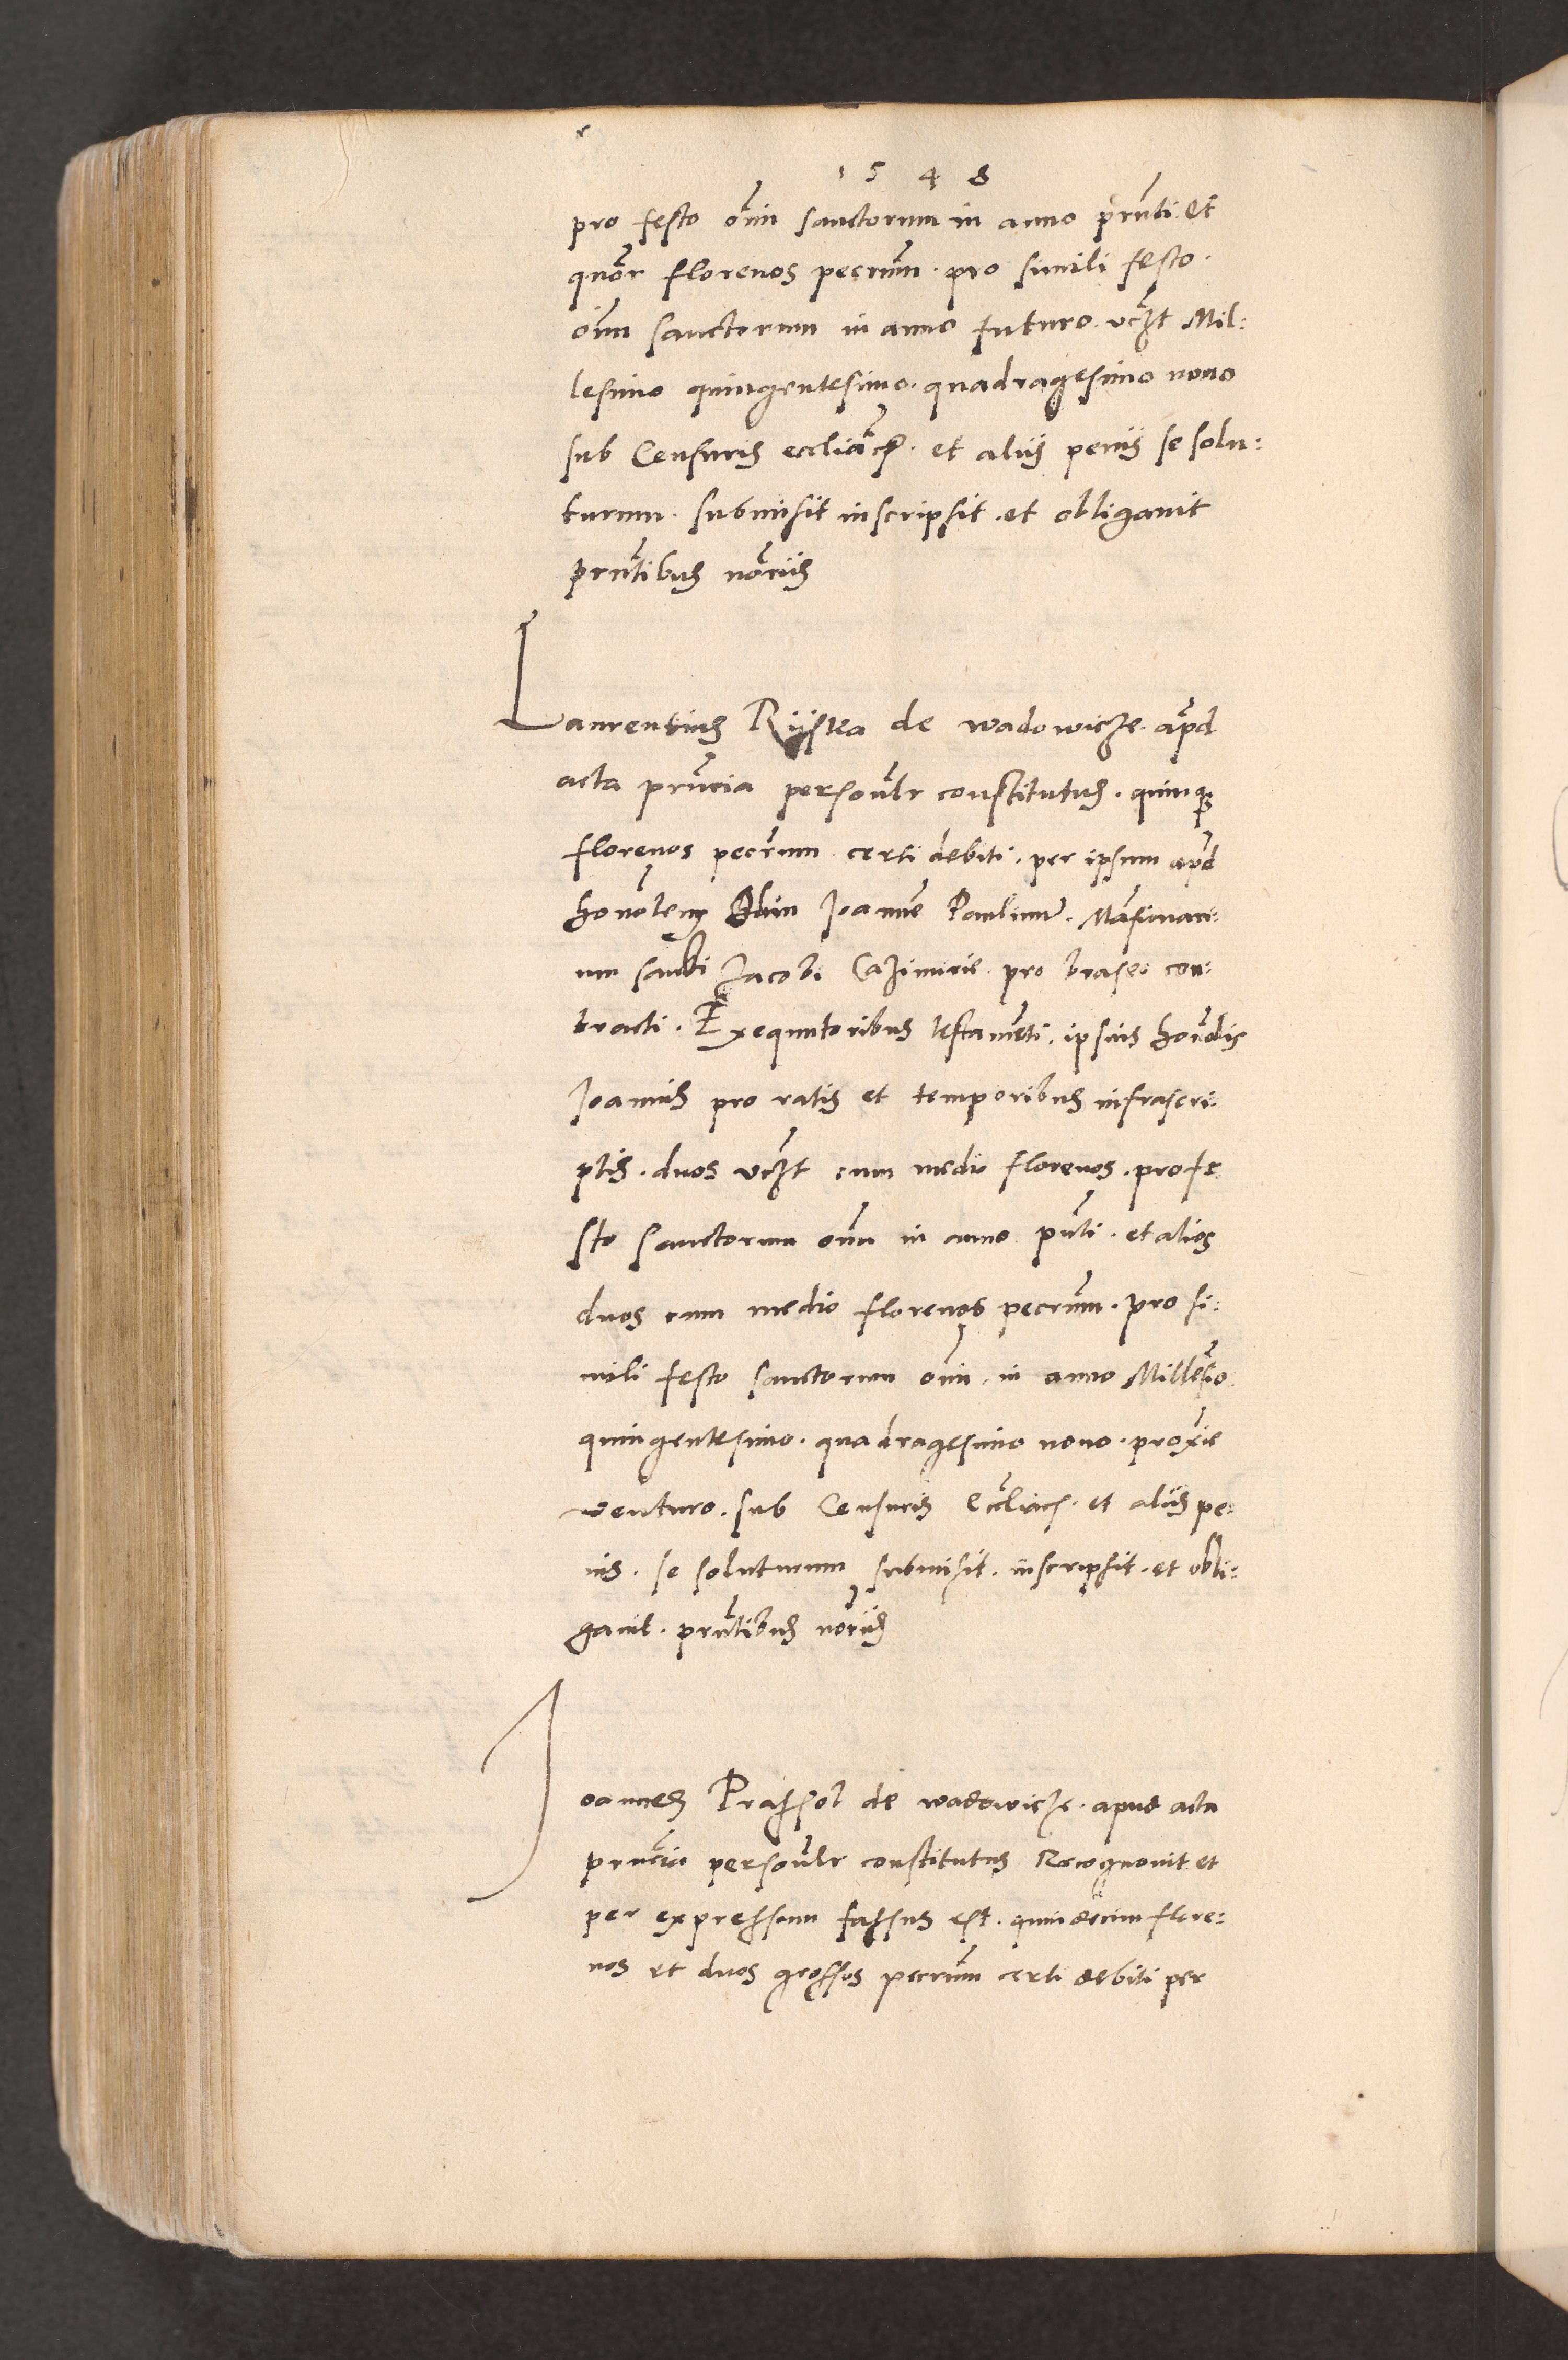 1548
pro festo om̃i sanctorum in anno prñti et
quor̃ florenos pecrum̃ · pro simili festo ·
om̃i sanctorum in anno futuro · vczt̃ Mil:
lesimo quingentesimo · quadragesimo nono
sub Censuris eccliãcis · et aliis penis se solu:
turum · submisit inscripsit · et obligauit
prñtibus norĩis
Laurentius Rijska de wadowicze · ap̃d
acta prñcia personlr̃ constitutus · quinq3
florenos pecrum̃ certi debiti · per ipsum apd̃
honolem̃ dm̃m Joannẽ Paulinũ · Mãsionari:
um sancti Jacobi Cazimirie · pro braseo con:
tracti · Exequutoribus testamẽti · ipsius honrãdis
Joannis pro ratis et temporibus infrascri:
ptis · duos vczt̃ cum medio florenos · pro fe
sto sanctorum om̃i in anno pñti · et alios
duos cum medio florenos pecrum̃ · pro si:
mili festo sanctorum om̃i · in anno Millesĩo
quingentesimo · quadragesimo nono · proxĩe
venturo · sub Censuris Eccl̃iacis · et aliis pe:
nis · se soluturum submisit · inscripsit · et obli:
gauit · prñtibus norĩis
Joannes Prassol de wadowicze · apud acta
prñcia personlr̃ constitutus Recognouit et
per expressum fassus est · quindecim flore:
nos et duos grossos pecrum̃ certi debiti per